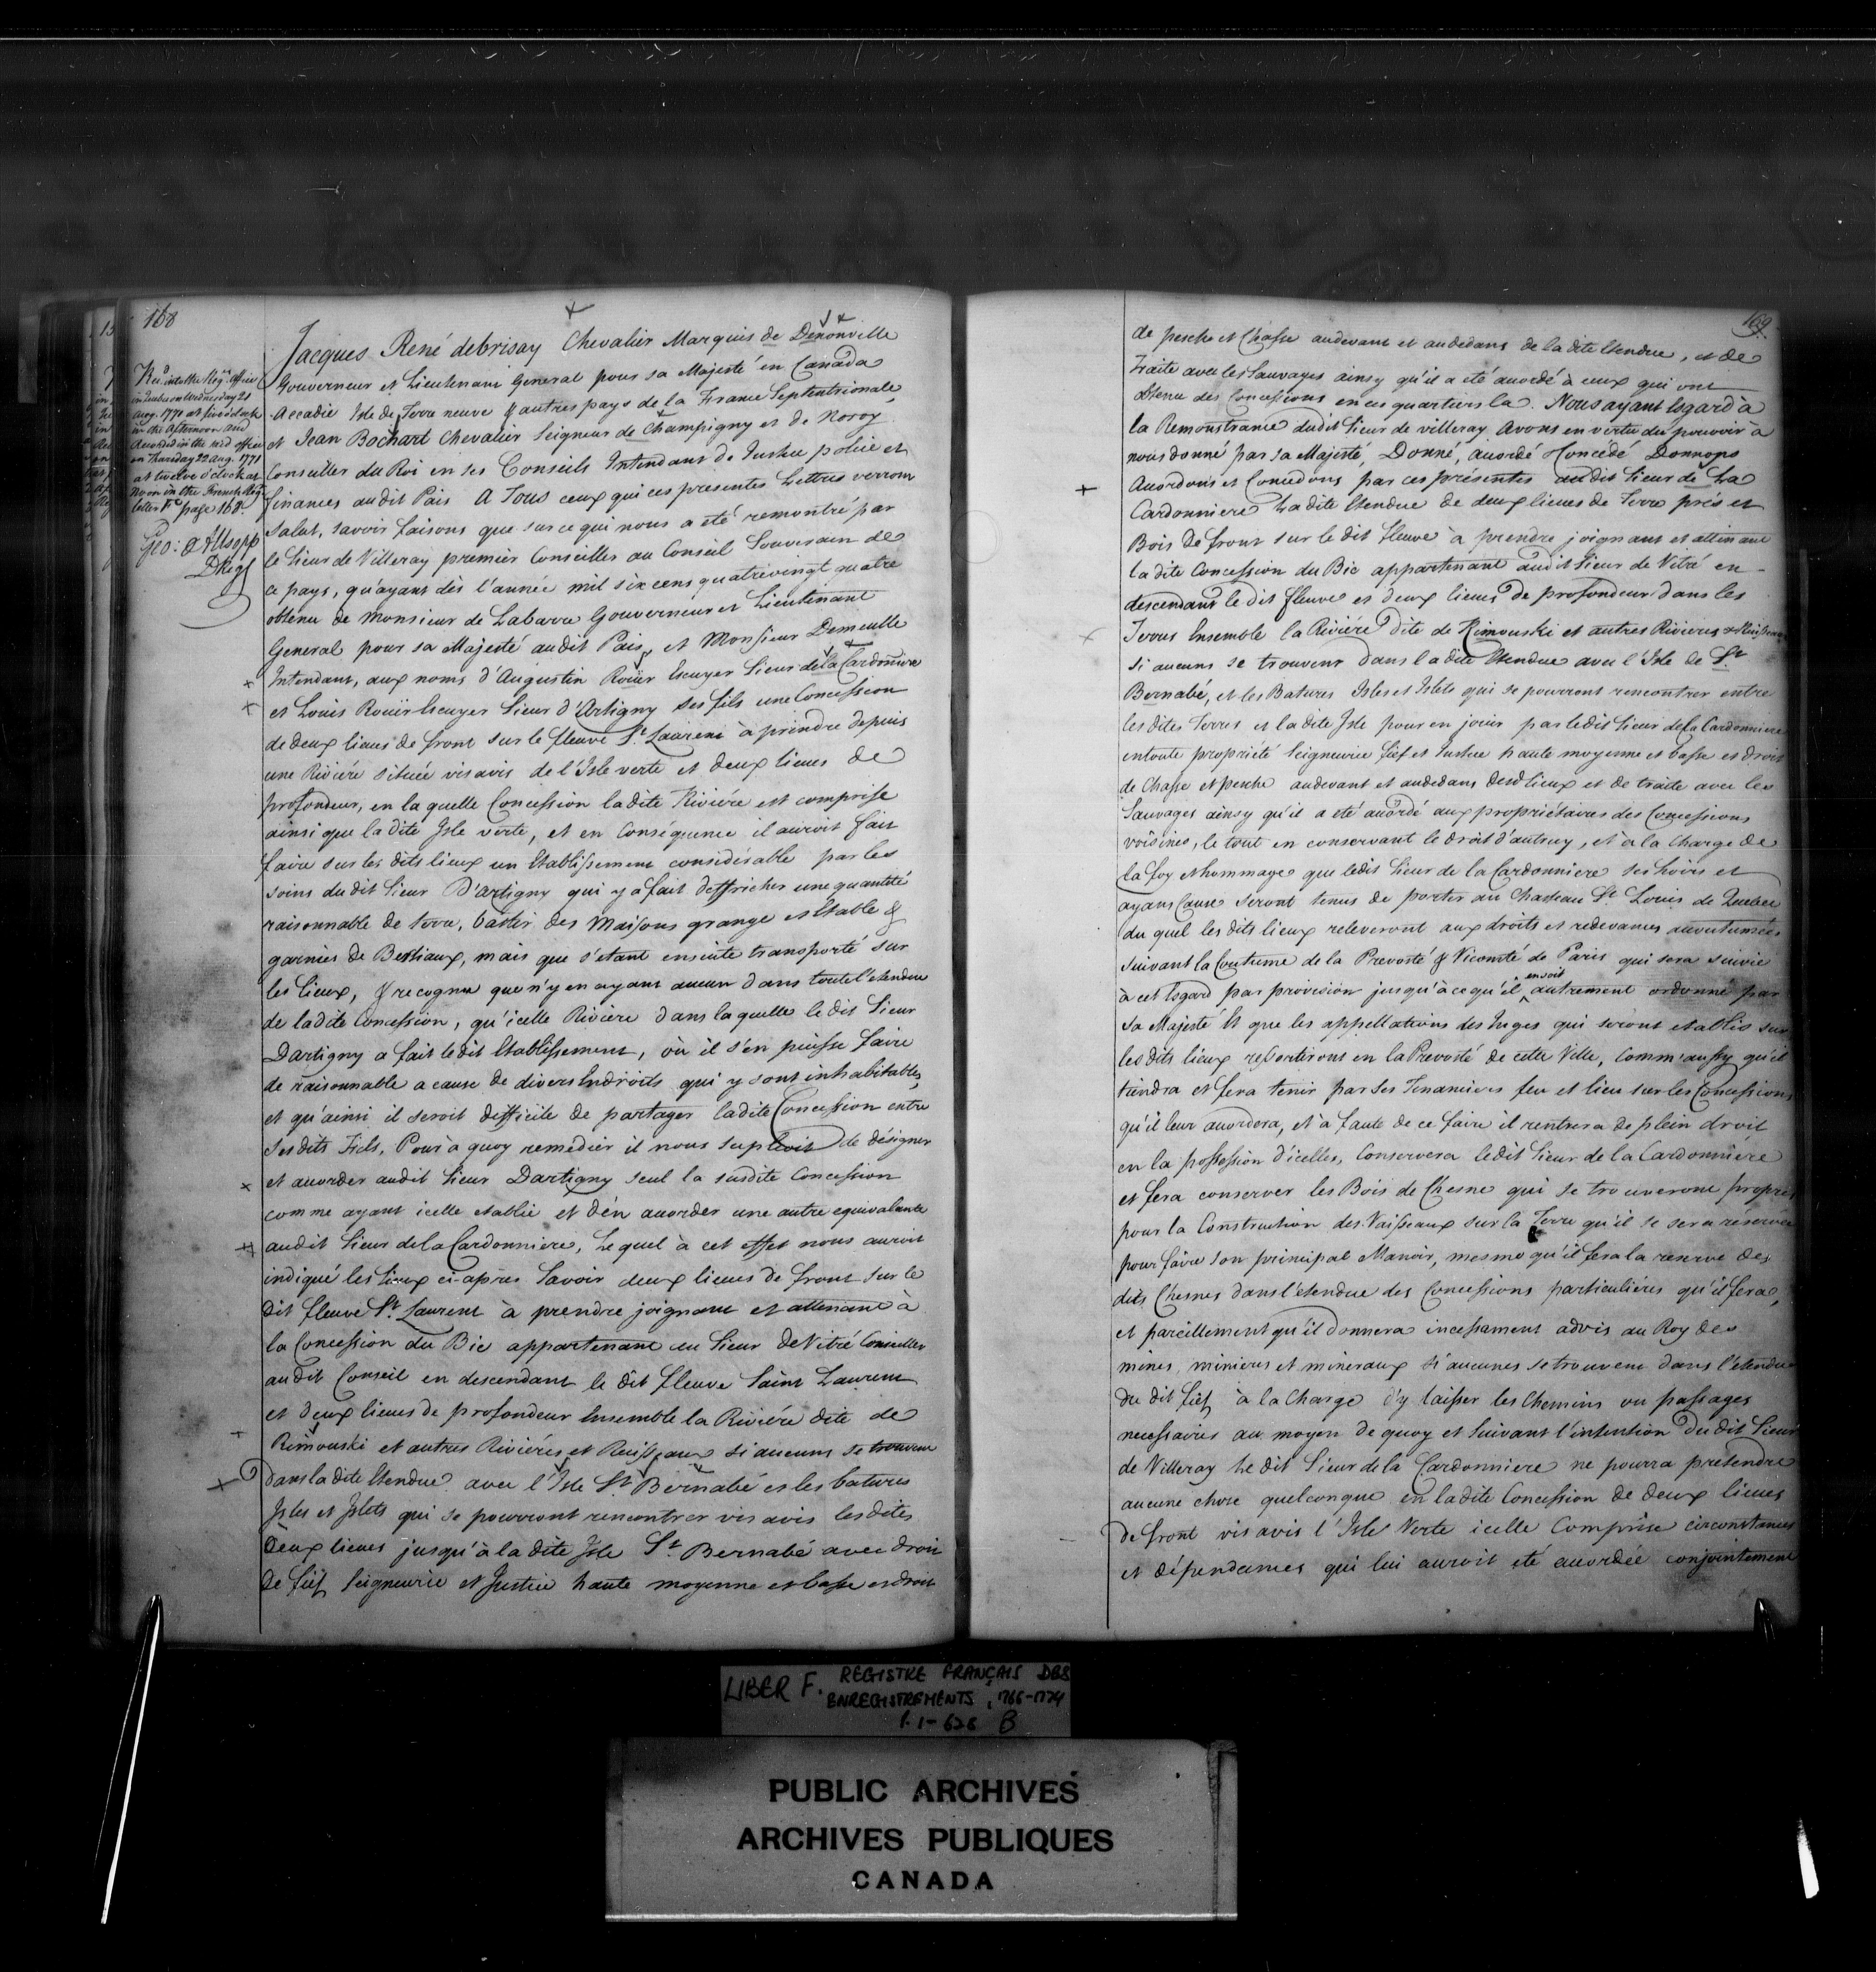 168
Rec.d into the Reg.rs Office
in Quebec on Wednesday 21
Aug. 1771 at five o'clock
in the Afternoon and
Recorded in the said office
on Thursday 22 Aug. 1771
at twelve o'clock at
Noon in the French Reg.
letter F. page 168.
Geo: Allsopp
DReg
Jacques René debrisay Chevalier Marquis de Denonville
Gouverneur et Lieutenant General pour sa Majesté en Canada
Accadie Isle de Terre neuve & autres pays de la France Septentrionale,
et Jean Bochart Chevalier Seigneur de Champigny et de Noroy
Conseiller du Roi en ses Conseils Intendant de Justice police et
finances audit Pais A Tous ceux qui ces presentes Lettres verront
Salut, savoir faisons que sur ce qui nous a été remontré par
le Sieur de Villeray premier Conseiller au Conseil Souverain de
ce pays, qu'ayant dès l'année mil six cens quatrevingt quatre
obtenu de Monsieur de Labarre Gouverneur et Lieutenant
General pour sa Majesté audit Pais, et Monsieur Demeulle
Intendant, aux noms d'Augustin Roüer Escuyer Sieur de la Cardonniere
et Louis Rouër Escuyer Sieur d'Artigny ses fils une Concession
de deux lieues de front sur le fleuve St. Laurent à prendre depuis
une Riviére située vis avis de l'Isle verte et deux lieues de
profondeur, en laquelle Concession ladite Riviére est comprise
ainsi que la dite Isle verte, et en Conséquence il auroit fait
faire sur les dits lieux un Etablissement considérable par les
soins du dit Sieur D'artigny qui y a fait deffricher une quantité
raisonnable de terre, bastir des Maisons grange et Etable &
garnies de Bestiaux, mais que s'étant ensuite transporté sur
les lieux, & recognu que n'y en ayant aucun dans toute l'etendue
de ladite Concession, qu'icelle Riviere dans laquelle le dit Sieur
Dartigny a fait ledit Etablissement, où il s'en puisse faire
de raisonnable a cause de divers Endroits qui y sont inhabitables,
et qu'ainsi il seroit difficile de partager ladite Concession entre
ses dits Fils, Pour à quoy remedier il nous suplioit de désigner
et accorder audit Sieur Dartigny seul la susdite Concession
comme ayant icelle etablie et d'en accorder une autre equivalante
audit Sieur de la Cardonniere, Lequel à cet effet nous auroit
indiqué les lieux ci-après Savoir deux lieues de front sur le
dit fleuve St. Laurent à prendre joignant et attenant à
la Concession du Bic appartenant au Sieur de Vitré Conseiller
audit Conseil en descendant le dit fleuve Saint Laurent
et deux lieues de profondeur Ensemble la Riviére dite de
Rimouski et autres Riviéres et Ruisseaux si aucuns se trouvent
Dans la dite Etendue avec l'Isle St. Bernabé et les batures
Isles et Islets qui se pourront rencontrer vis avis les dites
Deux lieues jusqu'à la dite Isle St. Bernabé avec droit
de fief Seigneurie et Justice haute moyenne et basse et droit
169
de pesche et Chasse audevant et audedans de la dite Etendue, et de
Traite avec les Sauvages ainsy qu'il a eté accordé à ceux qui ont
obtenu des Concessions en ces quartiers la. Nous ayant Esgard à
la Remonstrance dudit Sieur de villeray Avons en vertu du pouvoir à
nous donné par sa Majesté, Donné, accordé & Concédé Donnons
Accordons et Concedons par ces présentes audit Sieur de La
Cardonniere La dite Etendue de deux lieues de Terre prés et
Bois de front sur le dit fleuve à prendre joignant et attenant
la dite Concession du Bic appartenant audit Sieur de Vitré en
descendant le dit fleuve et deux lieues de profondeur dans les
Terres Ensemble la Riviére dite de Rimouski et autres Rivieres & Ruisseaux
si aucuns se trouvent dans la dite Etendue avec l'Isle de St.
Bernabé, et les Batures Isles et Islets qui se pourront rencontrer entre
les dites Terres et la dite Isle pour en jouir par ledit Sieur de la Cardonniere
en toute propriété Seigneurie fief et Justice haute moyenne et basse et droit
de Chasse et pesche audevant et audedans desd. Lieux et de traite avec les
Sauvages ainsy qu'il a été accordé aux propriétaires des Concessions
voisines, le tout en conservant le droit d'autruy, et à la Charge de
la foy et hommage que ledit Sieur de la Cardonniere ses hoirs et
ayans Cause seront tenus de porter au Chasteau St. Louis de Quebec
du quel les dits lieux releveront aux droits et redevances accoutumées
suivant la Coutume de la Prevosté & Vicomté de Paris qui sera suivie
à cet Esgard par provision jusqu'à ce qu'il en soit autrement ordonné par
Sa Majesté Et que les appellations des Juges qui seront etablis sur
les dits lieux ressortiront en la Prevosté de cette Ville, Comm'aussy qu'il
tiendra et fera tenir par ses Tenanciers feu et lieu sur les Concessions
qu'il leur accordera, et à faute de ce faire il rentrera de plein droit
en la possession d'icelles, Conservera ledit Sieur de la Cardonniere
et fera conserver les Bois de Chesne qui se trouveront propres
pour la Construction des Vaisseaux sur la Terre qu'il se sera reservée
pour faire son principal Manoir, mesme qu'il fera la reserve des
dits Chesnes dans l'étendue des Concessions particuliéres qu'il fera,
et pareillement qu'il donnera incessament advis au Roy des
mines, minieres et mineraux si aucunes se trouvent dans l'étendue
du dit fief à la Charge d'y laisser les Chemins ou passages
necessaires au moyen de quoy et Suivant l'intention du dit Sieur
de Villeray Le dit Sieur de la Cardonniere ne pourra prétendre
aucune chose quelconque en ladite Concession de deux lieues
de front vis avis l'Isle Verte icelle Comprise circonstances
et dépendances qui lui auroit été accordée conjointement
LIBER F. REGISTRE FRANÇAIS DES
ENREGISTREMENTS, 1766-1774
f. 1-626 B
PUBLIC ARCHIVES
ARCHIVES PUBLIQUES
CANADA